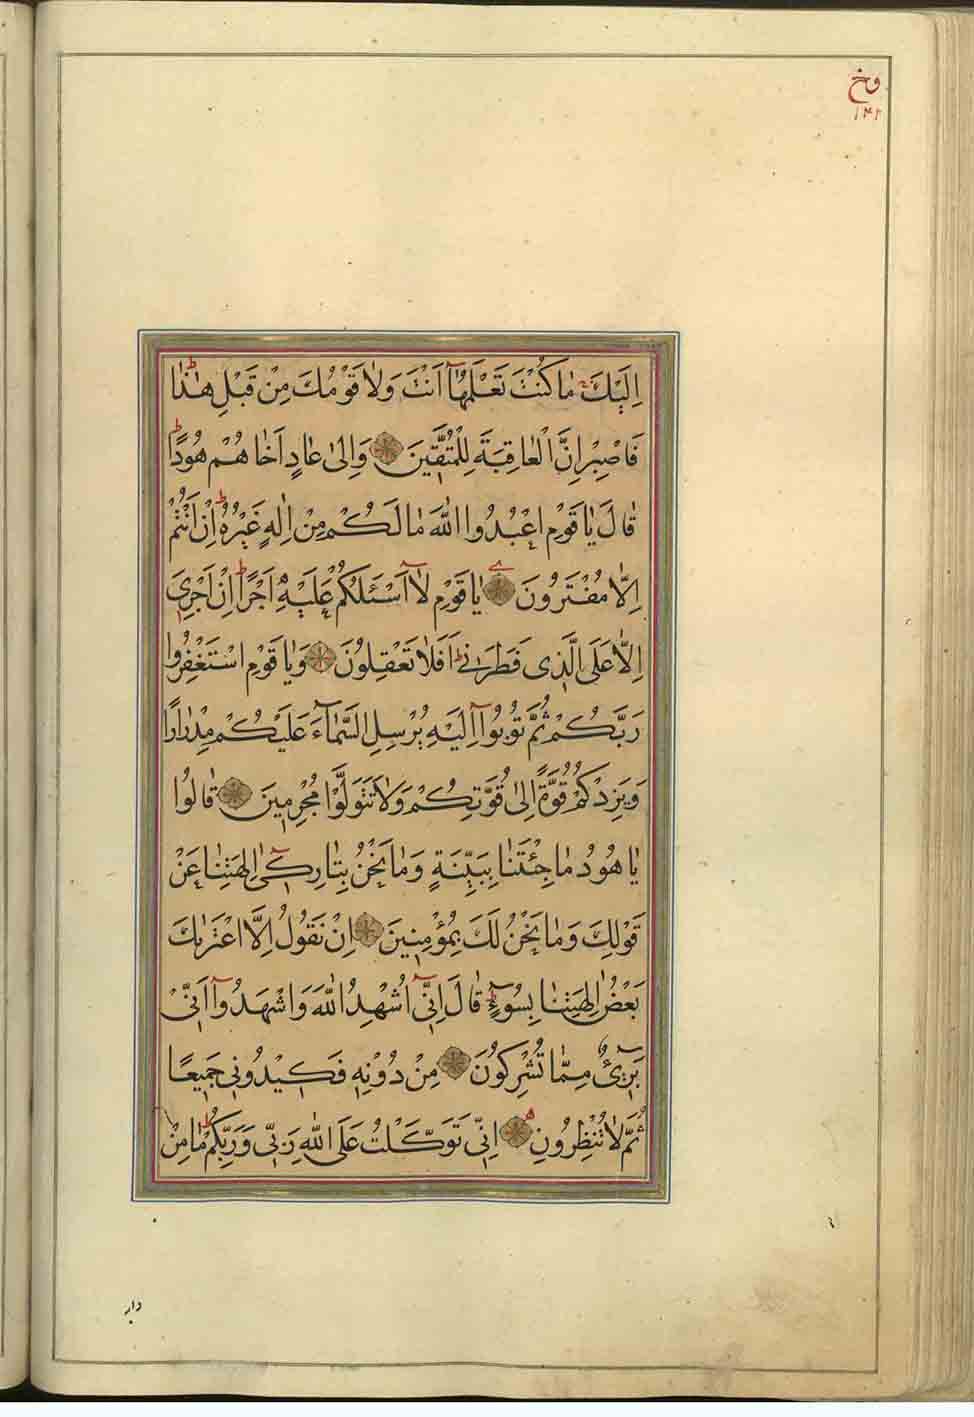 وخ
١٤٢
اِلَيْكَ مٰا كُنْتَ تَعْلَمُهٰآ اَنْتَ وَلٰا قَوْمُكَ مِنْ قَبْلِ هٰذٰا
فَاصْبِرْ اِنَّ الْعٰاقِبَةَ لِلْمُتَّقٖينَ وَاِلىٰ عٰادٍ اَخٰاهُمْ هُودًا
قٰالَ يٰا قَوْمِ اعْبُدُوا اللّٰهَ مٰا لَكُمْ مِنْ اِلٰهٍ غَيْرُهُ اِنْ اَنْتُمْ
اِلّٰا مُفْتَرُونَ يٰا قَوْمِ لٰآ اَسْئَلُكُمْ عَلَيْهِ اَجْرًا اِنْ اَجْرِيَ
اِلّٰا عَلَى الَّذٖى فَطَرَنٖى اَفَلٰا تَعْقِلُونَ وَيٰا قَوْمِ اسْتَغْفِرُوا
رَبَّكُمْ ثُمَّ تُوبُوآ اِلَيْهِ يُرْسِلِ السَّمٰآءَ عَلَيْكُمْ مِدْرٰارًا
وَيَزِدْكُمْ قُوَّةً اِلىٰ قُوَّتِكُمْ وَلٰا تَتَوَلَّوْا مُجْرِمٖينَ قٰالُوا
يٰا هُودُ مٰا جِئْتَنٰا بِبَيِّنَةٍ وَمٰا نَحْنُ بِتٰارِكٖىٓ اٰلِهَتِنٰا عَنْ
قَوْلِكَ وَمٰا نَحْنُ لَكَ بِمُؤْمِنٖينَ اِنْ نَقُولُ اِلَّا اعْتَرٰىكَ
بَعْضُ اٰلِهَتِنٰا بِسُوٓءٍ قٰالَ اِنّٖىٓ اُشْهِدُ اللّٰهَ وَاشْهَدُوآ اَنّٖى
بَرٖىٓءٌ مِمّٰا تُشْرِكُونَ مِنْ دُونِهٖ فَكٖيدُونٖى جَمٖيعًا
ثُمَّ لٰا تُنْظِرُونِ اِنّٖى تَوَكَّلْتُ عَلَى اللّٰهِ رَبّٖى وَرَبِّكُمْ مٰا مِنْ
دابه